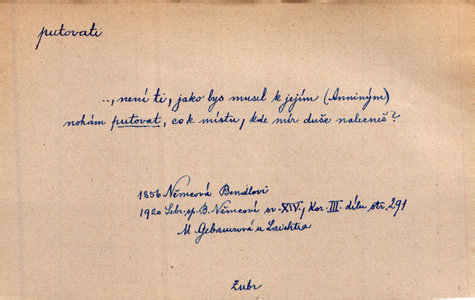 putovati
..., není ti, jako bys musel k jejím (Anniným)
nohám putovat, co k místu, kde mír duše nalezneš?
1856 Němcová Bendlovi
1920 Sebr. sp. B. Němcové sv. XIV, Kor. III. dílu str. 291
M. Gebauerová u Laichtra
Zubr